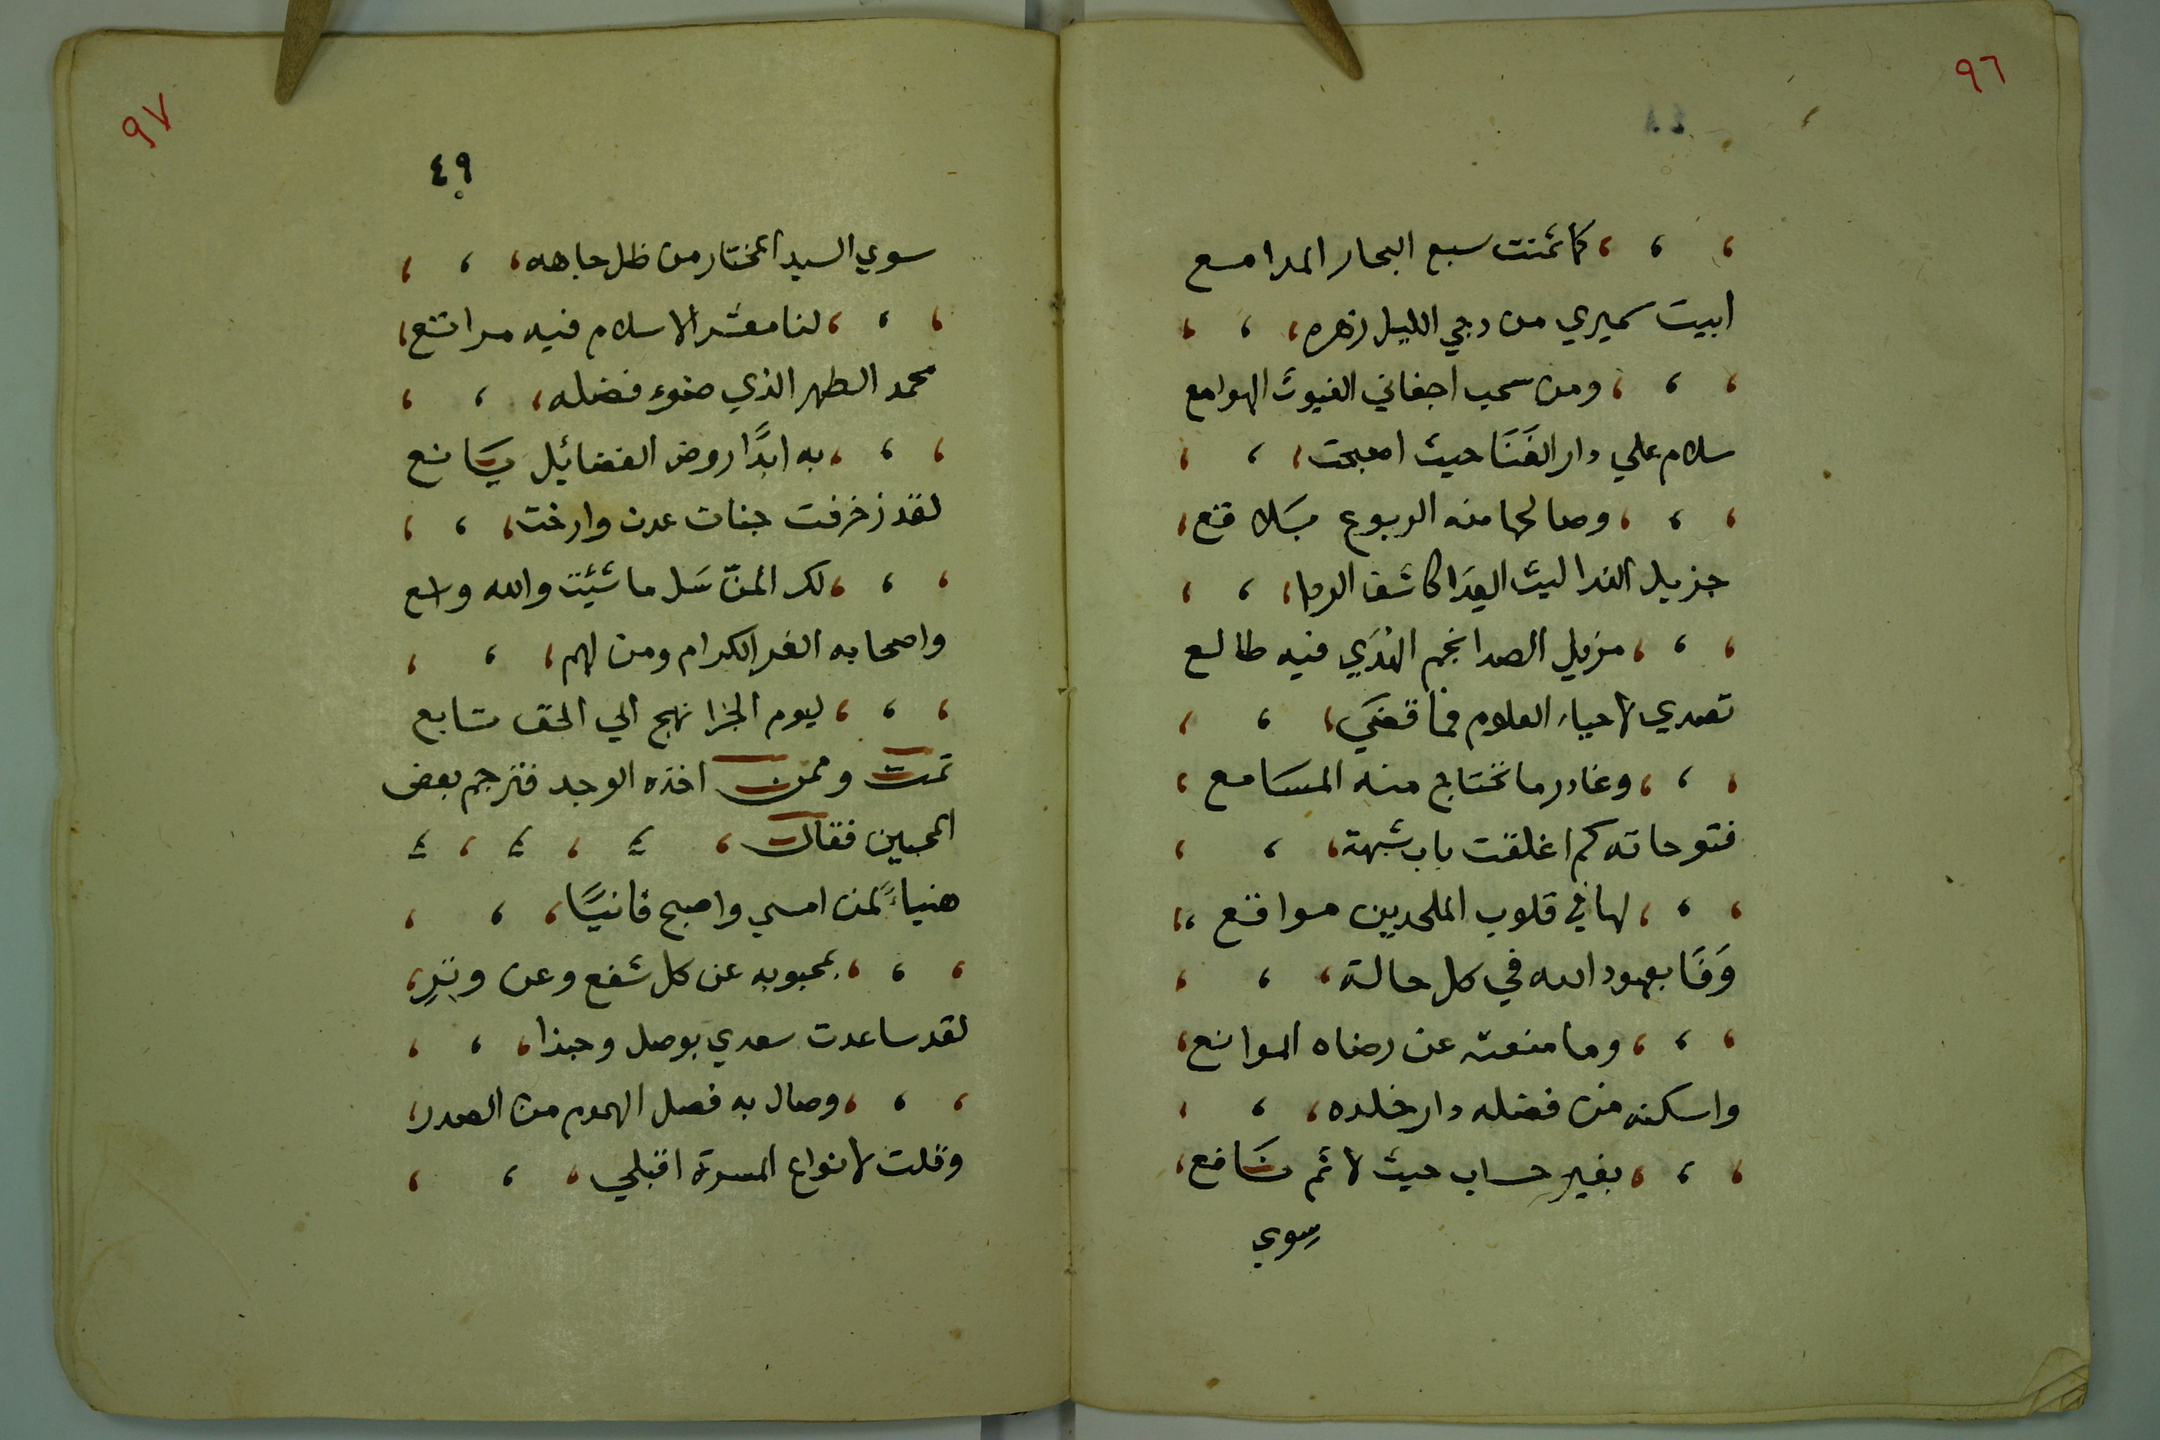 ٩٦
كما تمنت سبع البحار المدامع
ابيت سميري من دجي الليل زهره
ومن سحب اجفاني الغيوث الهوامع
سلام علي دار الفَنَا حيث اصبحت
وصالحها منه الربوع بَلاقع
جزيل الندا ليث العِدَا كاشف الردا
مزيل الصدا نجم الهُدَي فيه طالع
تصدي لاحياء العلوم فما قضَي
وغادر ما تحتاج منه المسَامع
فتوحاته كم اغلقت باب شبهة
لها في قلوب الملحدين مواقع
وَفَا بعهود الله في كل حالة
وما منعته عن رضاه الموانع
واسكنه من فضله دار خلده
بغير حساب حيث لا ثم شَافع
سوي
٩٧
٤٩
سوي السيد المختار من ظل جاهه
لنا معشر الاسلام فيه مراتع
محمد الطهر الذي ضوء فضله
به ابدًا روض الفضائيل يَانع
لقد زخرفت جنات عدن وارخت
لك المنّ سَل ما شئيت والله واسع
واصحابه الغر الكرام ومن لهم
ليوم الجزا نهج الي الحق شابع
تمت وممن اخذه الوجد فترجم بعض
المحبين فقال
هنياءً لمن امسي واصبح فانيًا
بمحبوبه عن كل شفع وعن وترِ
لقد ساعدت سعدي بوصل وحبذا
وصال به فصل الهموم من الصدر
وقلت لانواع المسرة اقبلي